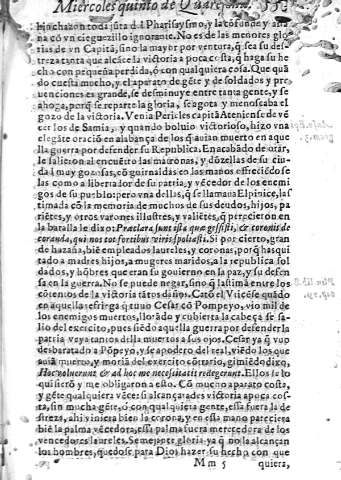 Miercoles quinto de Quaresma.
hijo, hazon toda jũta d̃l Pharisaysmo, y la cõfunde y a
na cõ vn cieguezillo ignorante. No es de las menores glo-
rias de vn Capitã, sino la mayor por ventura, q̃ sea su des-
treza tanta que alcãce la victoria a poca costa, q̃ haga su he
cho con pequeña perdida, ò con qualquiera cosa. Que quã
do cuesta mucho, y el aparato de gẽte y de soldados y pre-
uenciones es grande, se desminuye entre tanta gente, y se
ahoga, porq̃ se reparte la gloria, se agota y menoscaba el
gozo de la victoria. Venia Pericles capitã Ateniense de vẽ
cer los de Samia, y quando boluio victorioso, hizo vna
elegãte oraciõ en alabança de los q̃ auian muerto en aque
lla guerra por defender su Republica. En acabãdo de orar,
le salieron al encuẽtro las matronas, y dõzellas de su ciu-
dad muy gozosas, cõ guirnaldas en las manos ofreciẽdose
las como a libertador de su patria, y vẽcedor de los enemi
gos de su pueblo: pero vna dellas, q̃ se llamaua Elpinice, las
timada cõ la memoria de muchos de sus deudos, hijos, pa
riẽtes, y otros varones illustres, y valiẽtes, q̃ perecieron en
la batalla le dixo: Præclara sunt ista quæ gessisti, & coronis de
coranda, qui nos tot fortibus viris spoliasti. Si por cierto, gran
de hazaña, biẽ empleados laureles, y coronas, porq̃ has qui
tado a madres hijos, a mugeres maridos, a la republica sol
dados, y hõbres que eran su gouierno en la paz, y su defen
sa en la guerra. No se puede negar, sino q̃ lastima entre los
cõtentos de la victoria tãtos daños. Citò el Vicẽse quãdo
en aquella refriega q̃ tuuo Cesar cõ Pompeyo, vio mil de
los enemigos muertos, llorãdo y cubierta la cabeça se sa-
lio del exercito, pues siẽdo aquella guerra por defender la
patria veya tantos della muertos a sus ojos. Cesar ya q̃ vuo
desbaratado a Põpeyo, y apodero del real, viẽdo los que
auia muerto, y mortãdad del exercito cõtrario, gimiẽdo dixo,
Hoc voluerunt & ad hoc me necessitatis redegerunt. Ellos lo
quisierõ y me obligaron a esto. Cõ mucho aparato costa,
y gẽte qualquiera vẽce: si alcançarades victoria a poca cos-
ta, sin mucha gẽte, ò con qualquiera gente, essa fuera la de-
streza, ahi y iniera bien la corona, y en essa mano pareciera
biẽ la palma vẽcedora, essa palma fuera merecedora de los
vencedores laureles. Semejante gloria ya q̃ no la alcançan
los hombres, quedose para Dios hazer su hecho con que
Mm 5 quiera,